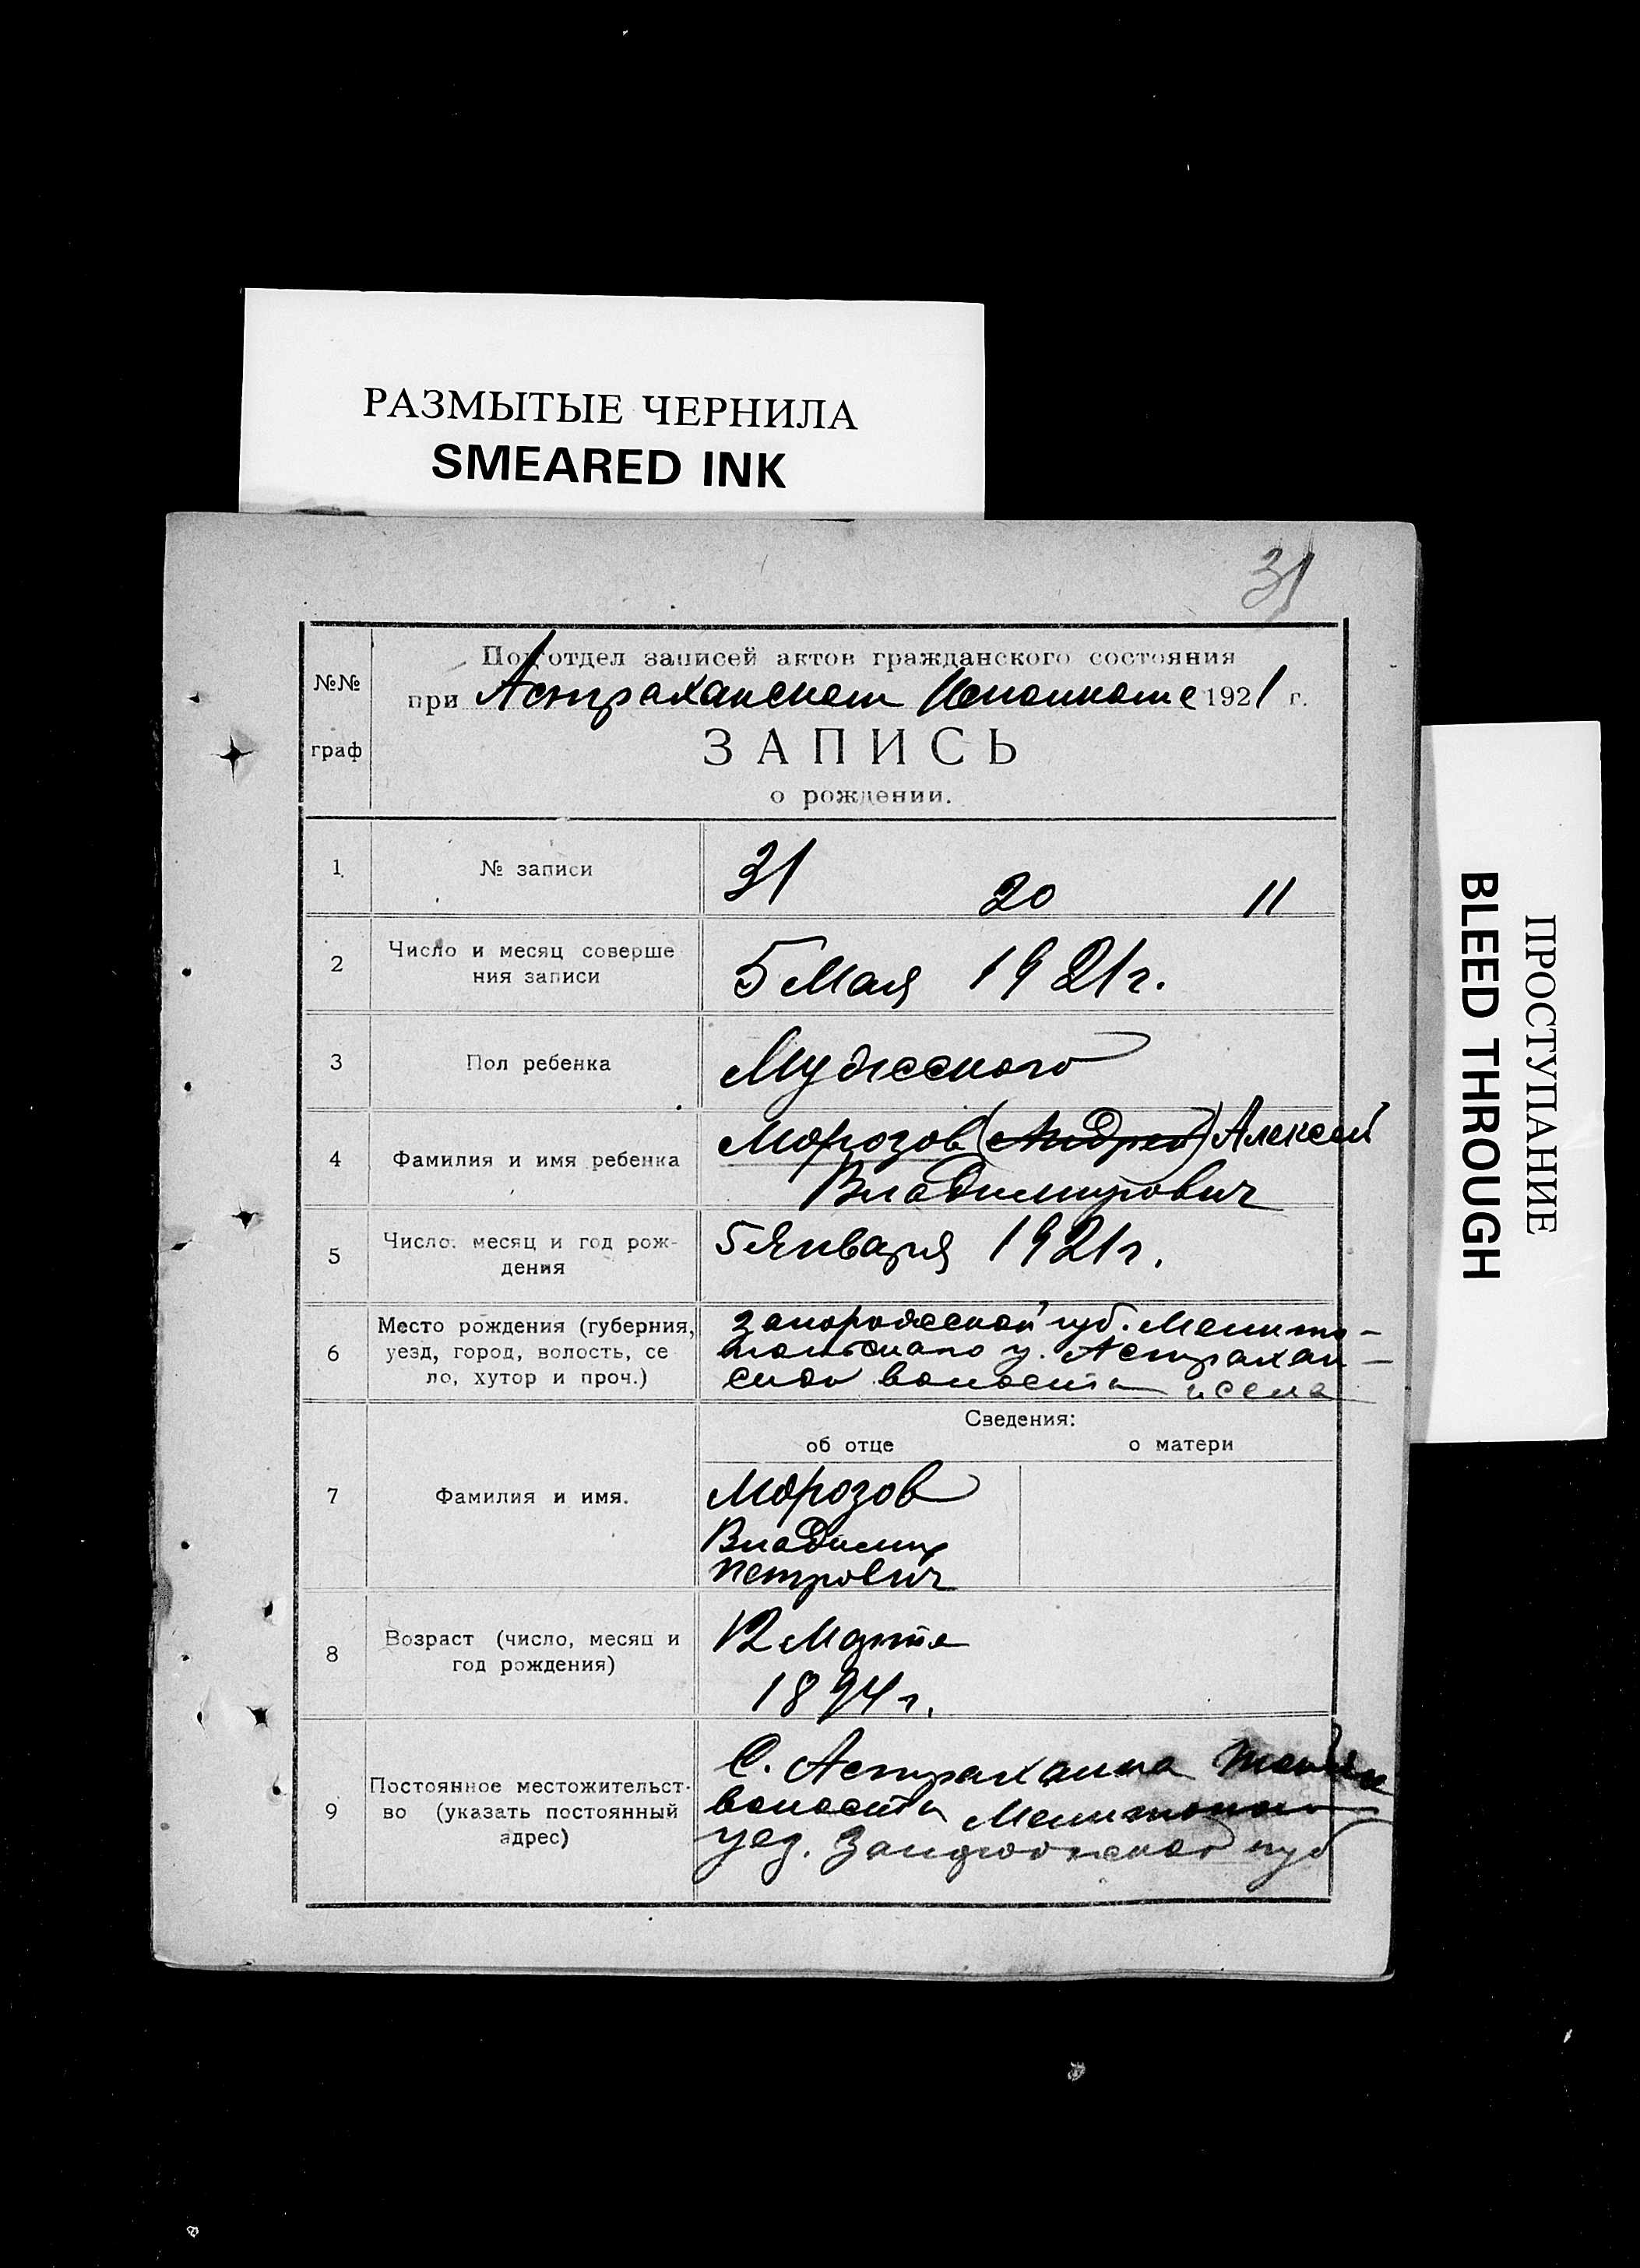 РАЗМЫТЫЕ ЧЕРНИЛА
SMEARED INK
ПРОСТУПАНИЕ
BLEED THROUGH
31
№№
граф
Подотдел записей актов гражданского состояния
при Астраханском 1921 г.
ЗАПИСЬ
о рождении.
1
№ записи
31 20 11
2
Число и месяц соверше
ния записи
5 Мая 1921 г.
3
Пол ребенка
Мужеского
4
Фамилия и имя ребенка
Морозов (Андрей) Алексей
Владимирович
5
Число. месяц и год рож-
дения
5 Января 1921 г.
6
Место рождения (губерния,
уезд, город, волость, се
ло, хутор и проч.)
Запорожской губ. Мелито-
польскаго у. Астрахан-
ской волости и села
Сведения:
об отце
о матери
7
Фамилия и имя.
Морозов
Владимир
Петрович
8
Возраст (число, месяц и
год рождения)
12 Марта
1894 г.
9
Постоянное местожительст-
во (указать постоянный
адрес)
С. Астраханка
волости
уез. губ